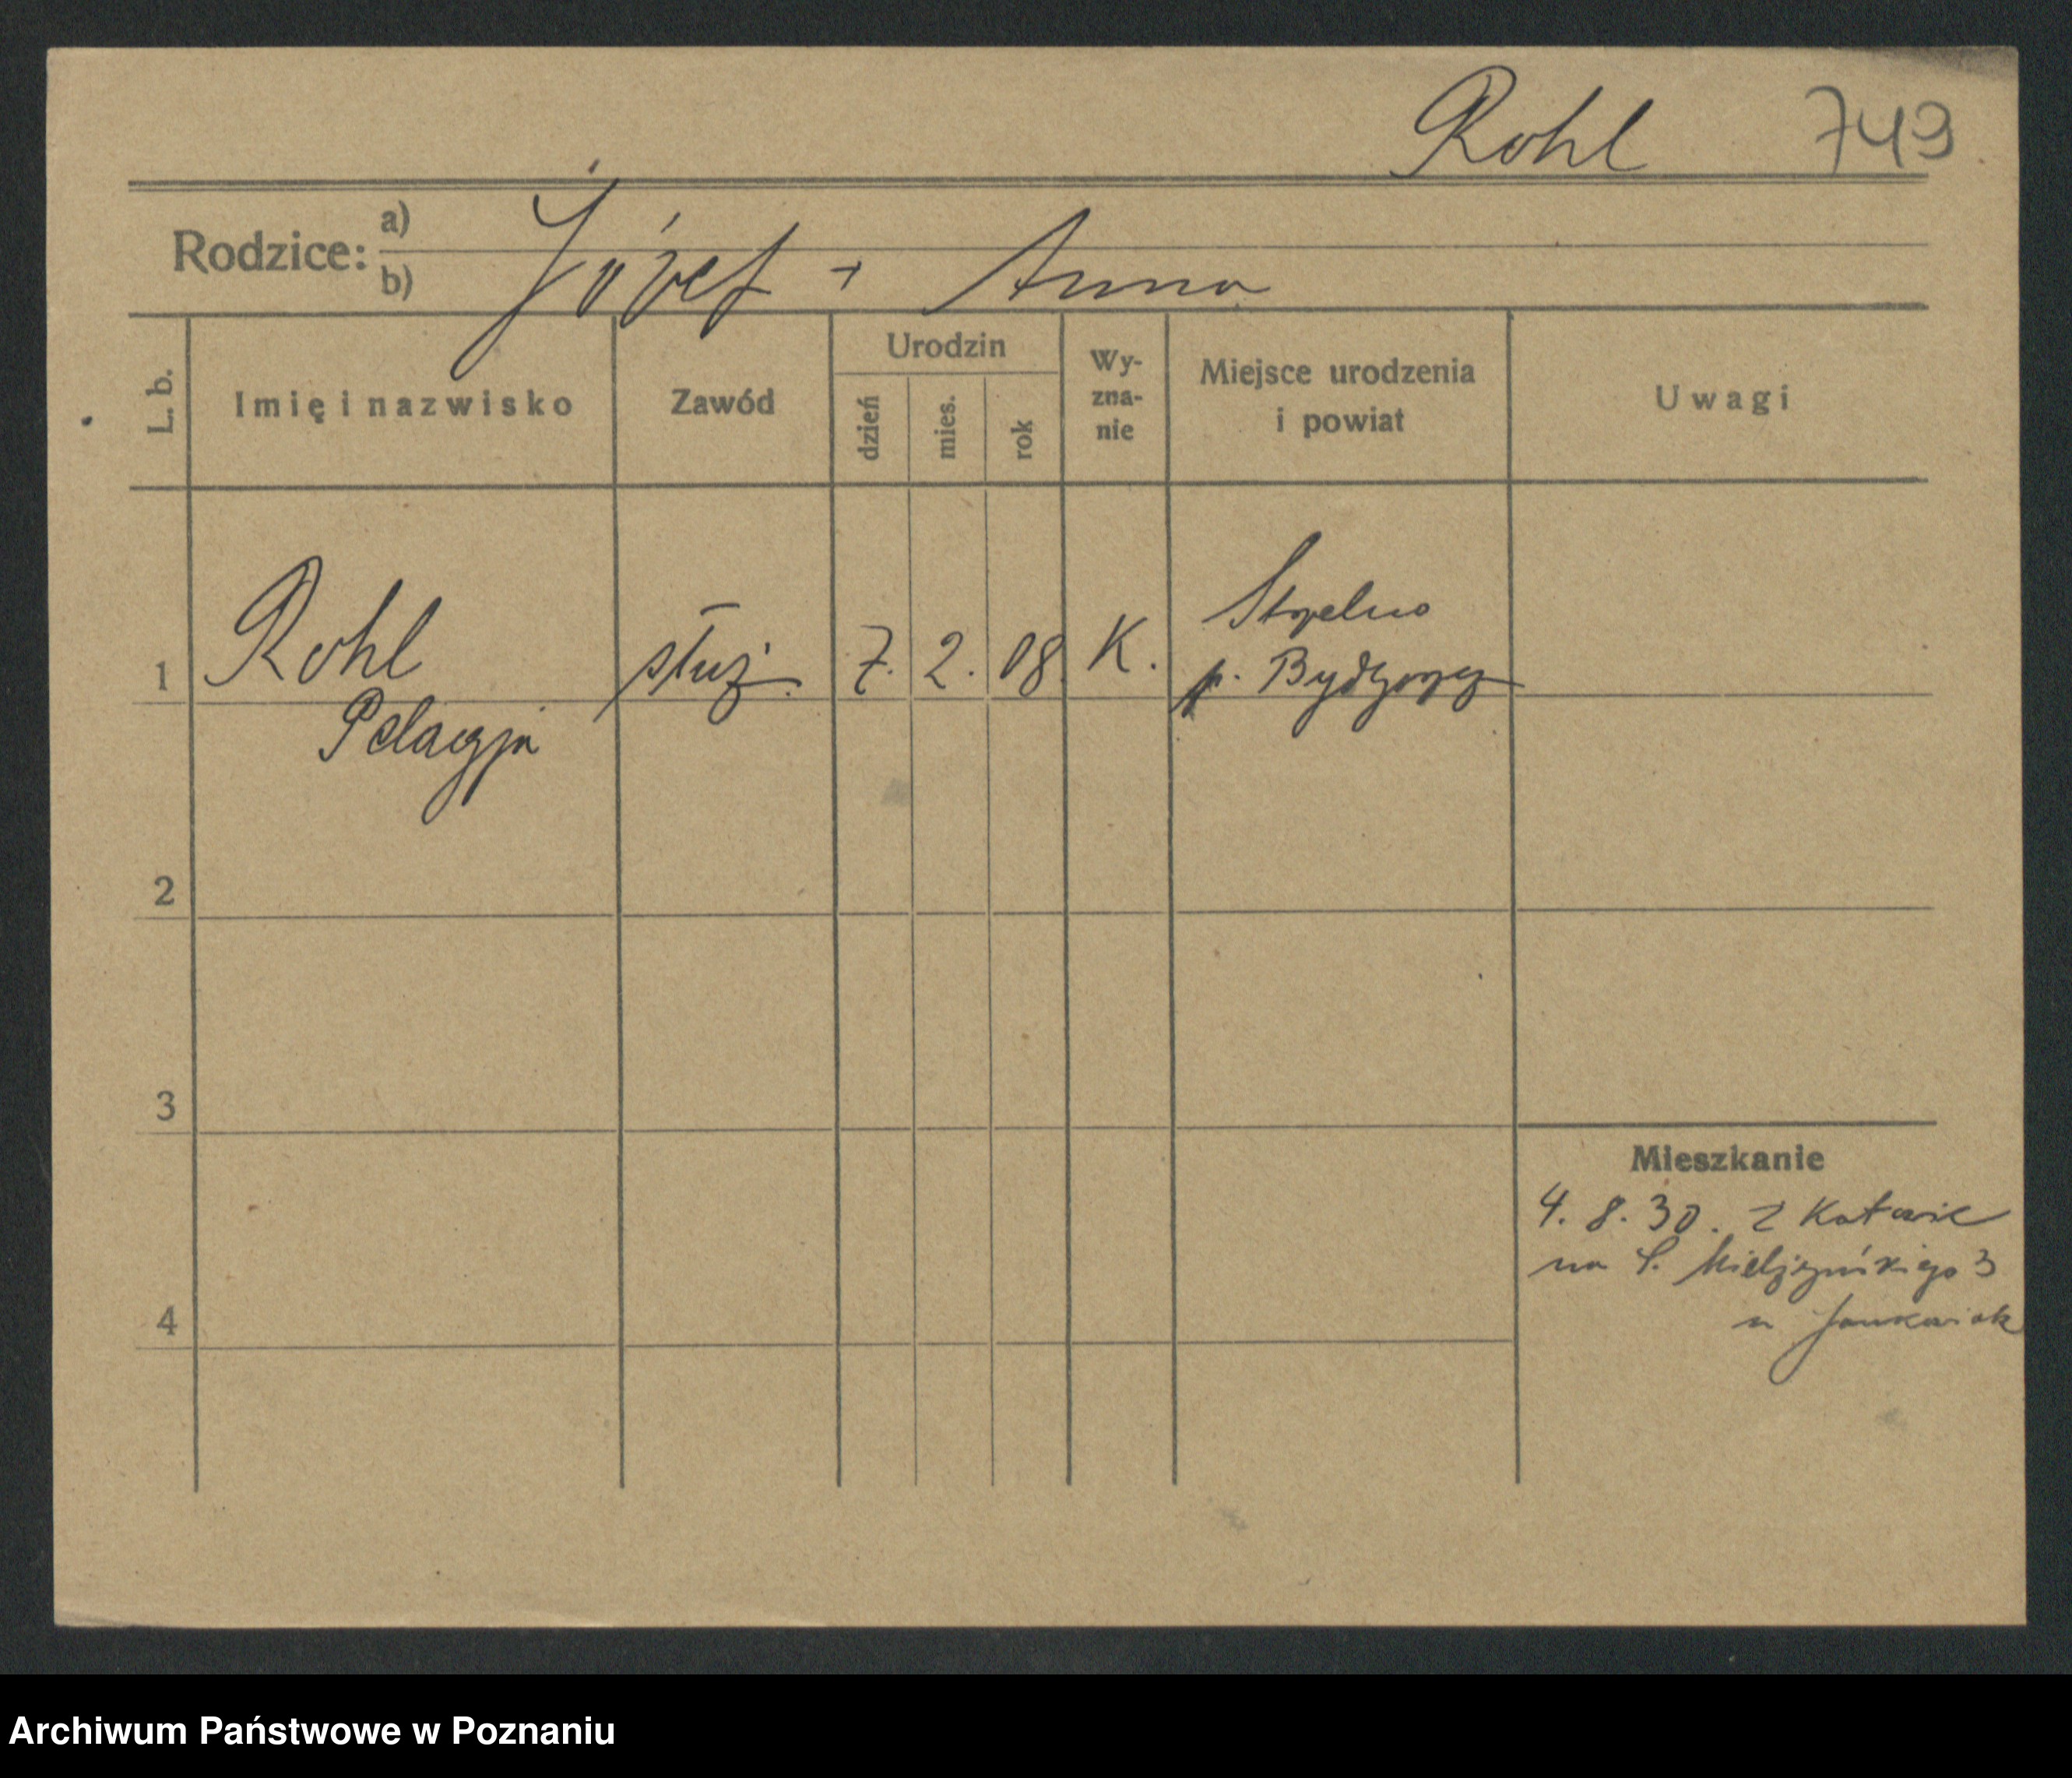 Rohl 749
Rodzice: a)
b)
Józef + Anna
L. b.
Imię i nazwisko
Zawód
Urodzin
dzień
mies.
rok
Wy-
zna-
nie
Miejsce urodzenia
i powiat
Uwagi
1 Rohl służ. 7. 2. 08. K. Strzelno
Pelagja
p. Bydgoszcz
2
3
4
Mieszkanie
4. 8. 30. z Katowic
na S. Mielżyńskiego 3
u Jankowiak
Archiwum Państwowe w Poznaniu